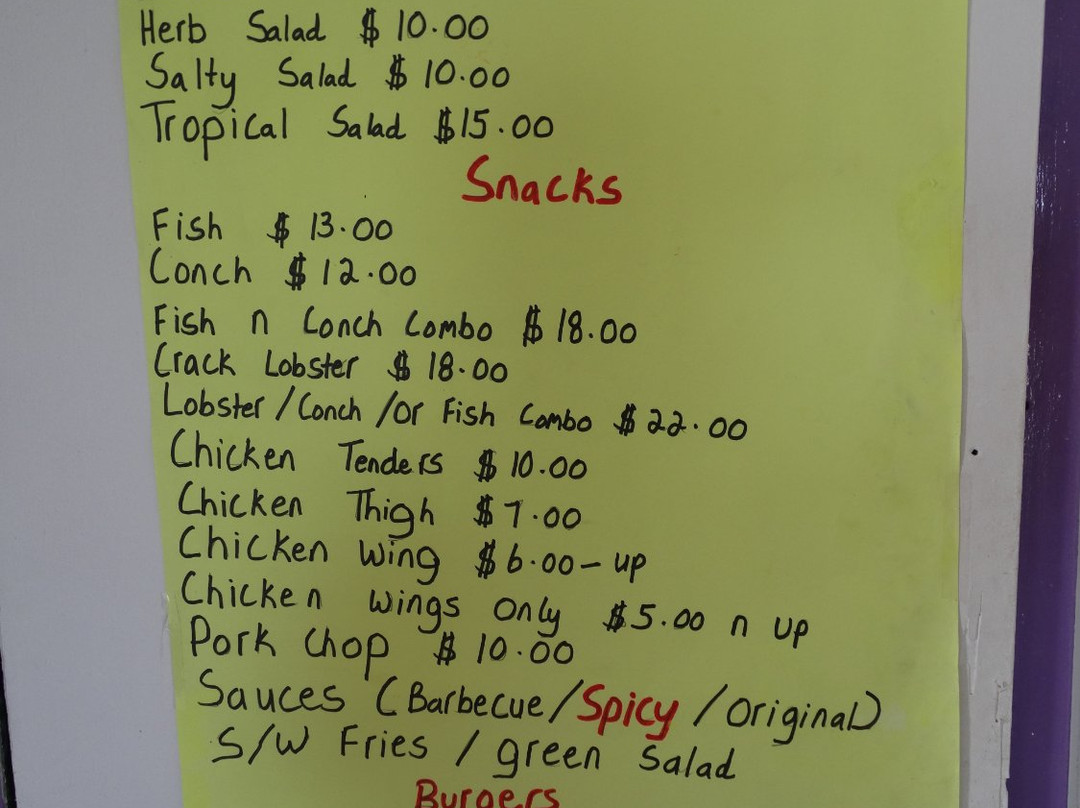 Herb Salad $ 10.00
Salty Salad $ 10.00
Tropical Salad $15.00
Snacks
Fish $ 13.00
Conch $ 12.00
Fish n Conch Combo $ 18.00
Crack Lobster $ 18.00
Lobster / Conch / Or Fish Combo $ 22.00
Chicken Tenders $ 10.00
Chicken Thigh $ 7.00
Chicken Wing $ 6.00 - up
Chicken Wings Only $5.00 n up
Pork Chop $ 10.00
Sauces (Barbecue / Spicy / Original)
S/W Fries / green Salad
Burgers